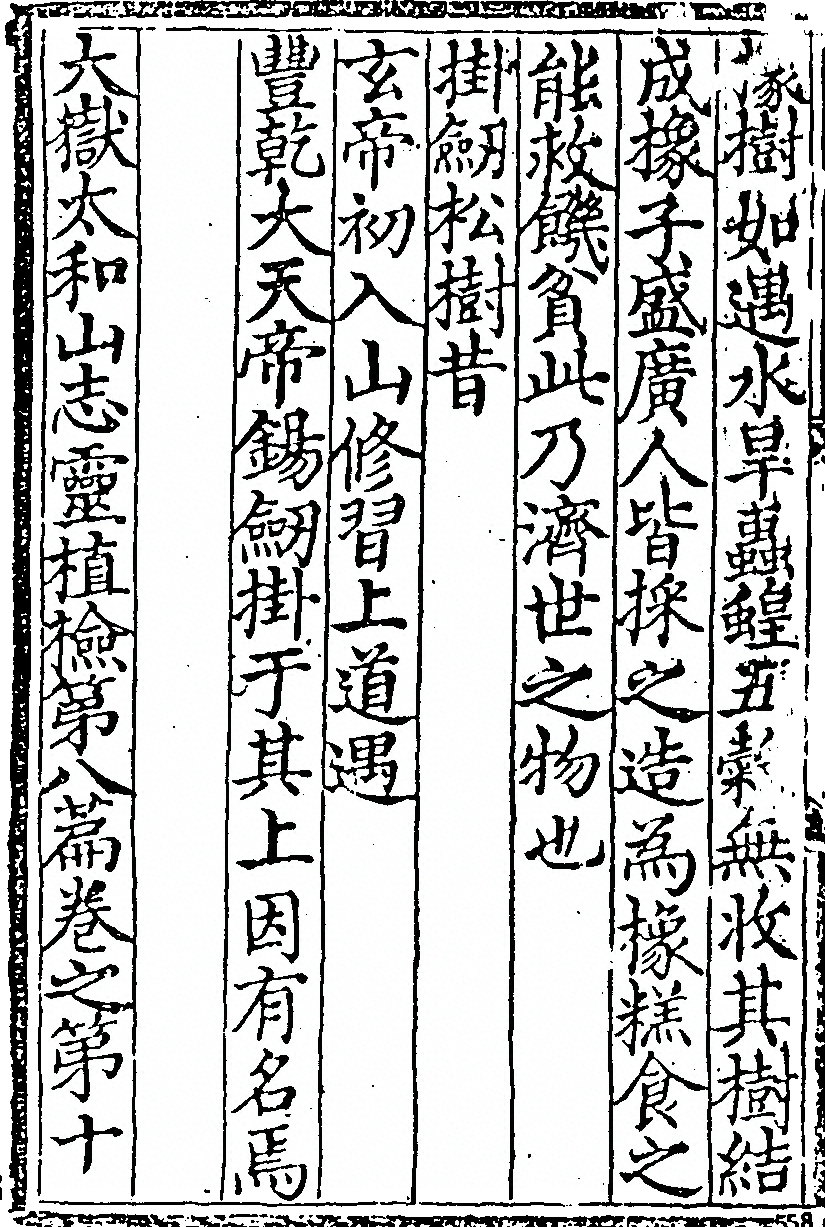 橡樹如遇水旱蟲蝗五穀無收其樹結
成橡子盛廣人皆採之造為橡糕食之
能救饑貧此乃濟世之物也
掛劒松樹昔
玄帝初入山修習上道遇
豐乾大天帝錫劒掛于其上因有名焉
大嶽太和山志靈植撿第八篇卷之第十
558